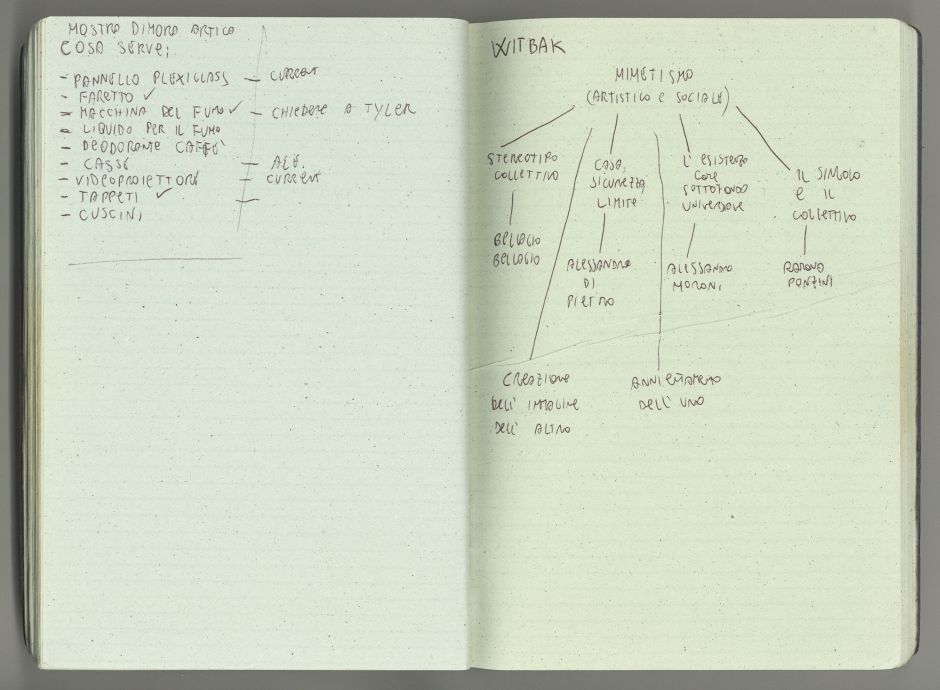 MOSTRA DIMORA ARTICA
COSA SERVE:
- PANNELLO PLEXIGLASS — CURRENT
- FARETTO ✓
- MACCHINA DEL FUMO ✓ — CHIEDERE A TYLER
- LIQUIDO PER IL FUMO
- DEODORANTE CAFFE'
- CASSE — ALE.
- VIDEOPROIETTORE — CURRENT
- TAPPETI ✓ —
- CUSCINI
WITBAK
MIMETISMO
(ARTISTICO E SOCIALE)
STEREOTIPO
COLLETTIVO
BELLAGIO
BELLAGIO
CASA,
SICUREZZA,
LIMITE
ALESSANDRO
DI
PIETRO
L'ESISTENZA
COME
SOTTOFONDO
UNIVERSALE
ALESSANDRO
MORONI
IL SIMBOLO
E IL
COLLETTIVO
PONZINI
CREAZIONE
DELL'IMMAGINE
DELL'ALTRO
ANNIENTAMENTO
DELL'UNO